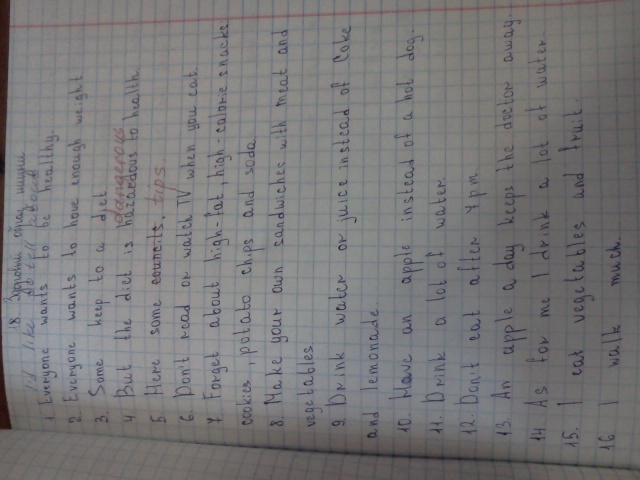 18 Здоровий спосіб
I'd like to tell about
1 Everyone wants to be healthy.
2. Everyone wants to have enough weight
3. Some keep to a diet
dangerous
4 But the diet is hazardous to health.
5. Here some councits. tips.
6. Don't read or watch TV when you eat.
7. Forget about high-fat, high-calorie snacks
cookies, potato chips and soda
8. Make your own sandwiches with meat and
vegetables
9. Drink water or juice instead of Coke
and lemonade.
10. Have an apple instead of a hot dog.
11. Drink a lot of water.
12. Don't eat after 7 pm
13. An apple a day keeps the doctor away.
14 As for me I drink a lot of water
15. I eat vegetables and fruit.
16 I walk much.